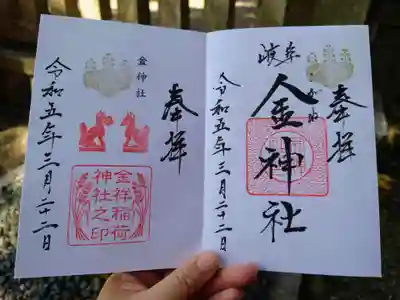 奉拝
岐阜
金神社
こがね
令和五年三月二十二日
奉拝
金神社
金祥稲荷
神社之印
令和五年三月二十二日